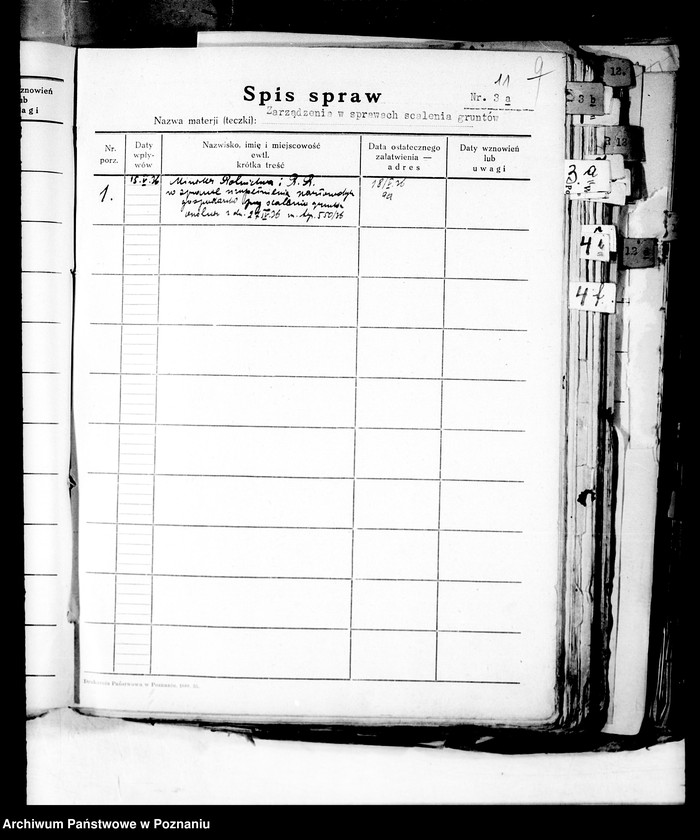 znowień
ub
agi
11
9
Spis spraw
Nr. 3 a
Zarządzenia w sprawach scalenia gruntów
Nazwa materji (teczki):
Nr. porz.
Daty wpły- wów
Nazwisko, imię i miejscowość
ewtl.
krótka treść
Data ostatecznego
załatwienia —
adres
Daty wznowień
lub
uwagi
1.
18.V.36
Minister Rolnictwa i R. R.
w sprawie
przy scaleniu gruntów
z dn. 27.IV.36 550/36
18/V.36
3a
Drukarnia Państwowa w Poznaniu
12.
3 b
R 12
3.a
4 b
12
4 f.
Archiwum Państwowe w Poznaniu